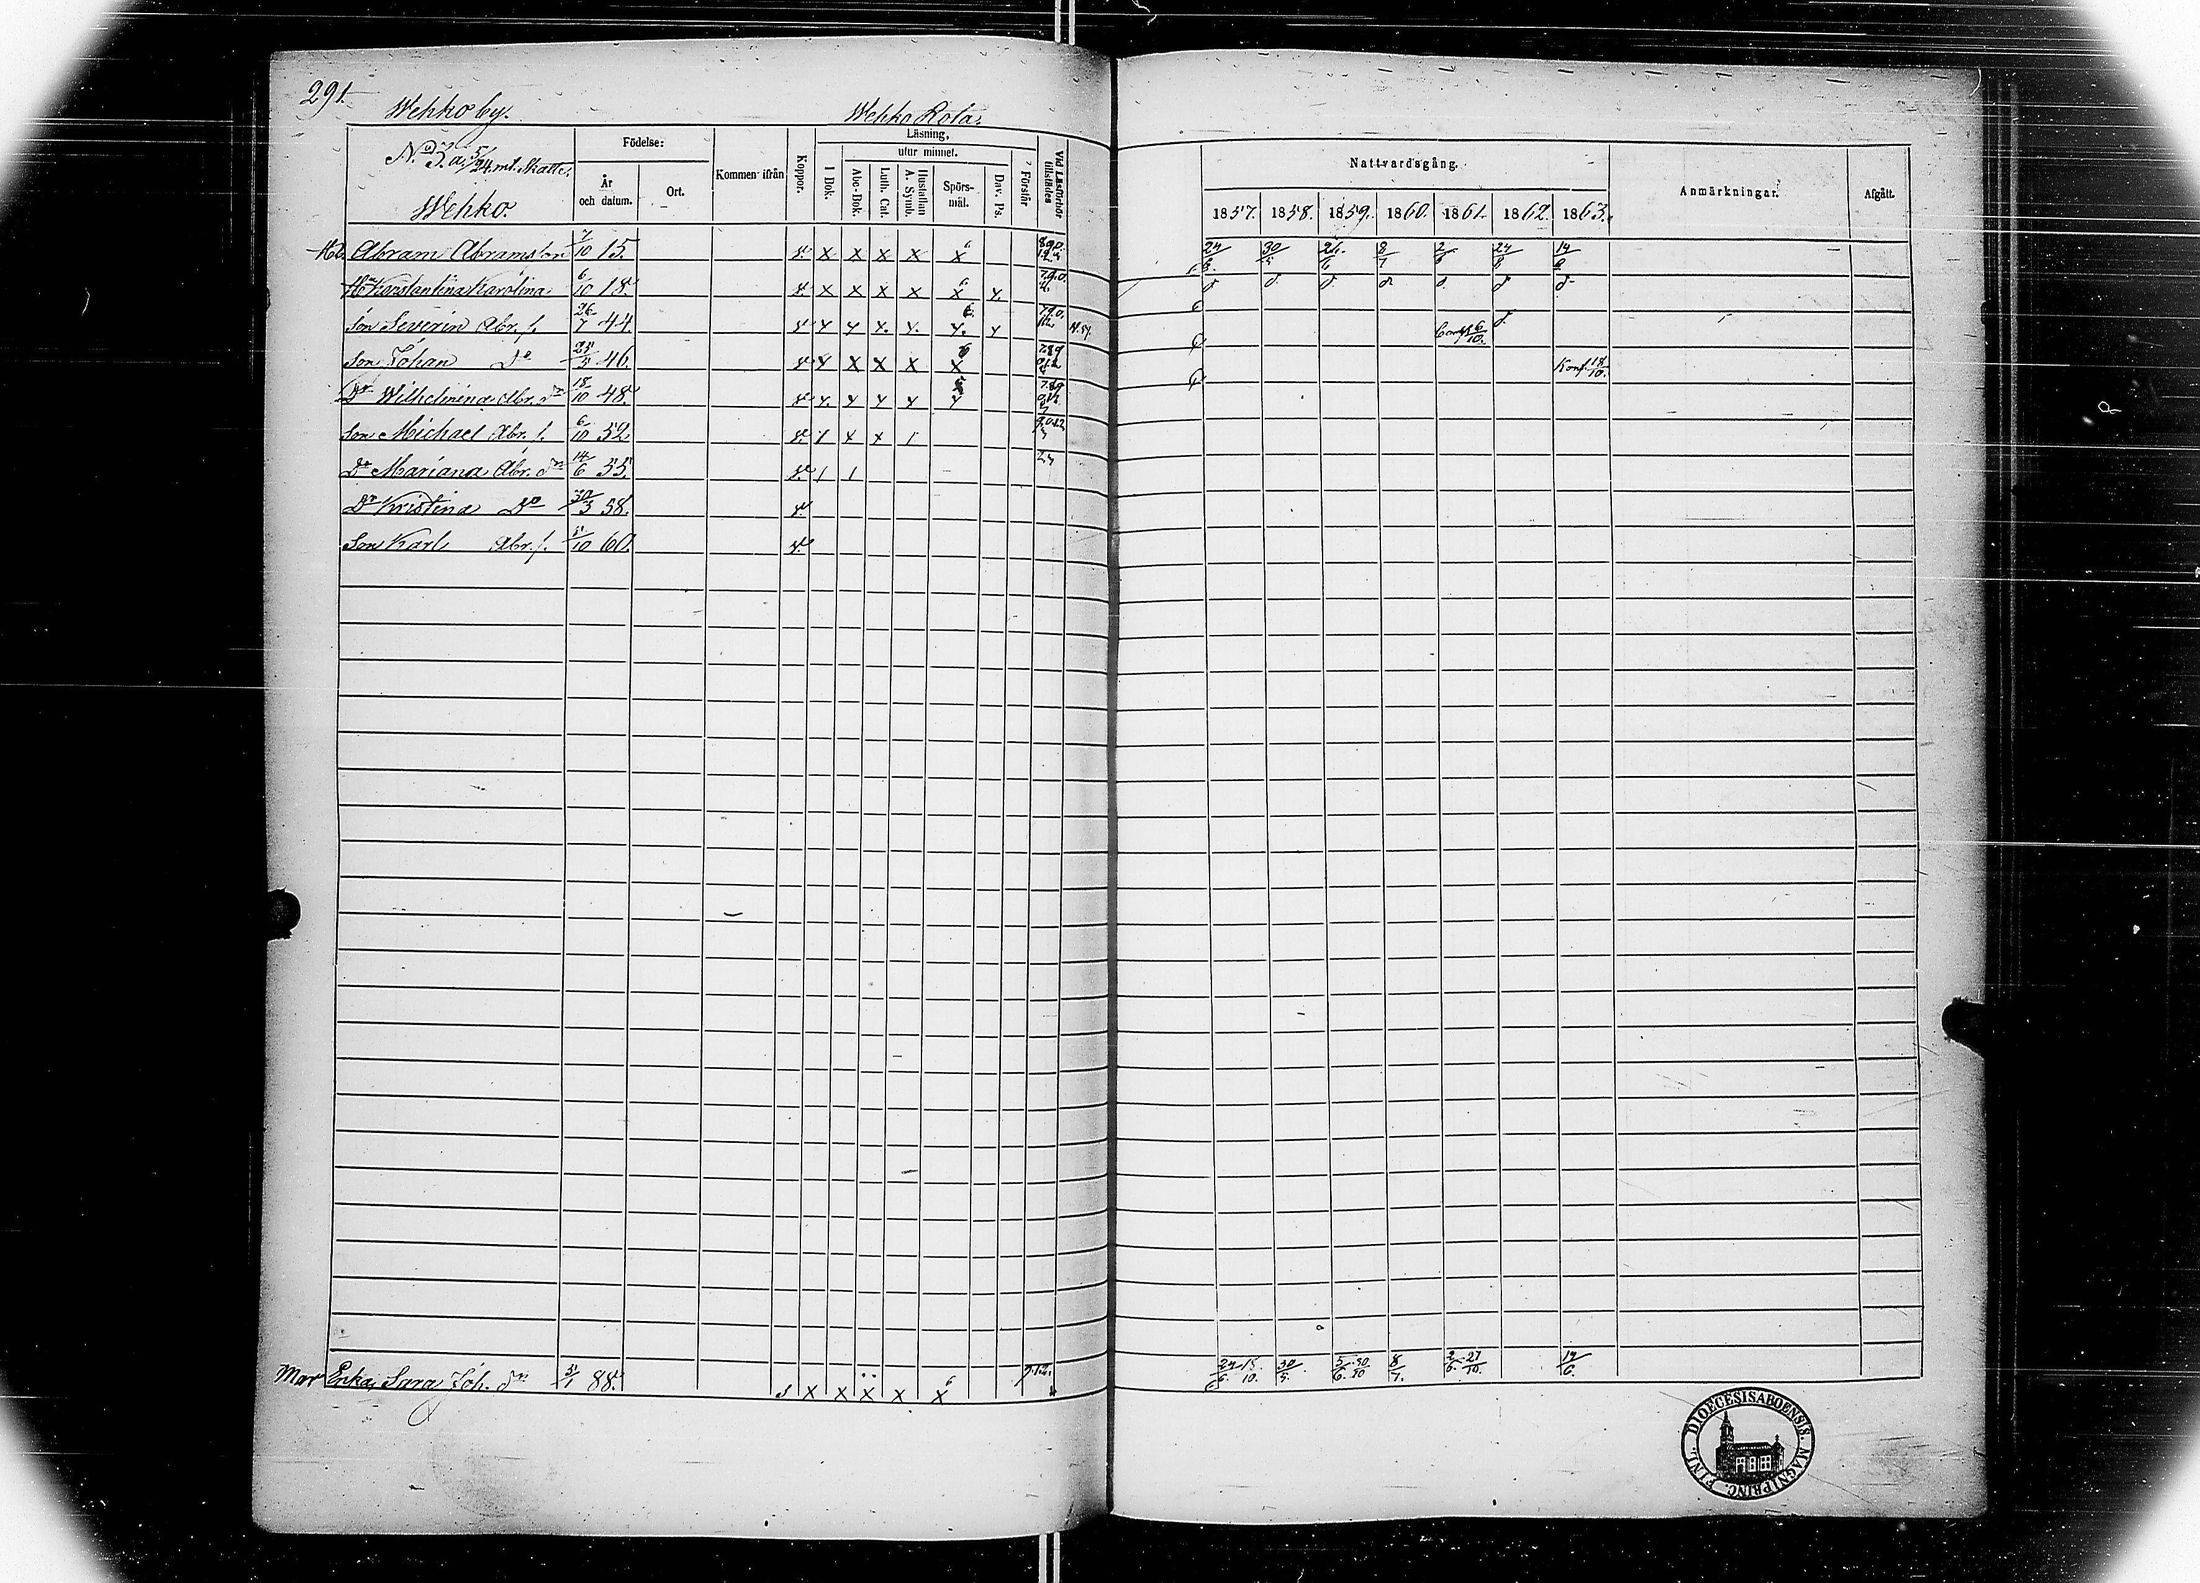 291.
Wehko by. Wehko Rota.
No 3. a, 5/24 mt. Skatte.
Wehko.
Födelse: År och datum. Ort.
Kommen ifrån
Koppor.
Läsning,
I Bok.
utur minnet.
Abc-Bok. Luth. Cat. Hustaflan A. Symb. Spörs-mål. Dav. Ps.
Förstår
Vid Läsförhör tillstädes
Nattvardsgång.
1857. 1858. 1859. 1860. 1861. 1862. 1863.
Anmärkningar.
Afgått.
Abram Abramsson 7/10 15. x x x x x 24/6 30/5 26/6 8/7 2/6 24/8 14/6
Hu Konstantina Karolina 6/10 18. x x x x x
Son Severin Abr. s. 26/7 44. Conf. 6/10.
Son Johan Do 25/5 46. x x x x Konf. 18/10.
Dr Wilhelmina Abr. dr 18/10 48.
Son Michael Abr. s. 6/10 52. 1 x x 1
Dr Mariana Abr. dr 14/6 55. 1 1
Dr Kristina Do 30/3 58.
Son Karl Abr. s. 5/10 60.
Enka, Sara Joh. dr 5/1 88. x x x x x 30/5. 8/7. 2/6. 27/10. 14/6.
FINL. DIOECESIS ABOENSIS. MAGNI PRINC.